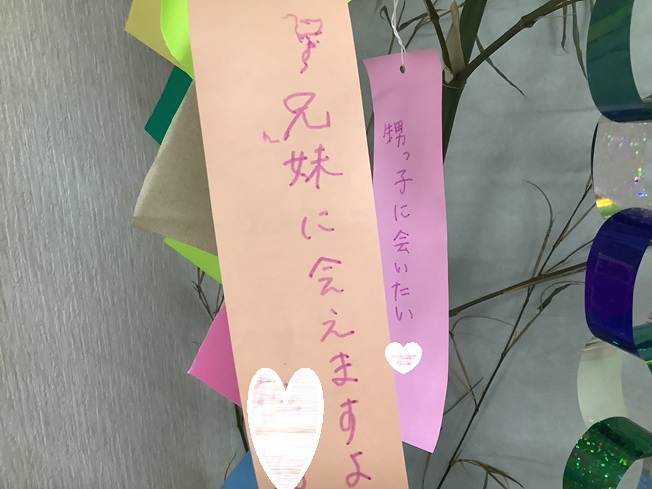 兄妹に会えますよ
甥っ子に会いたい